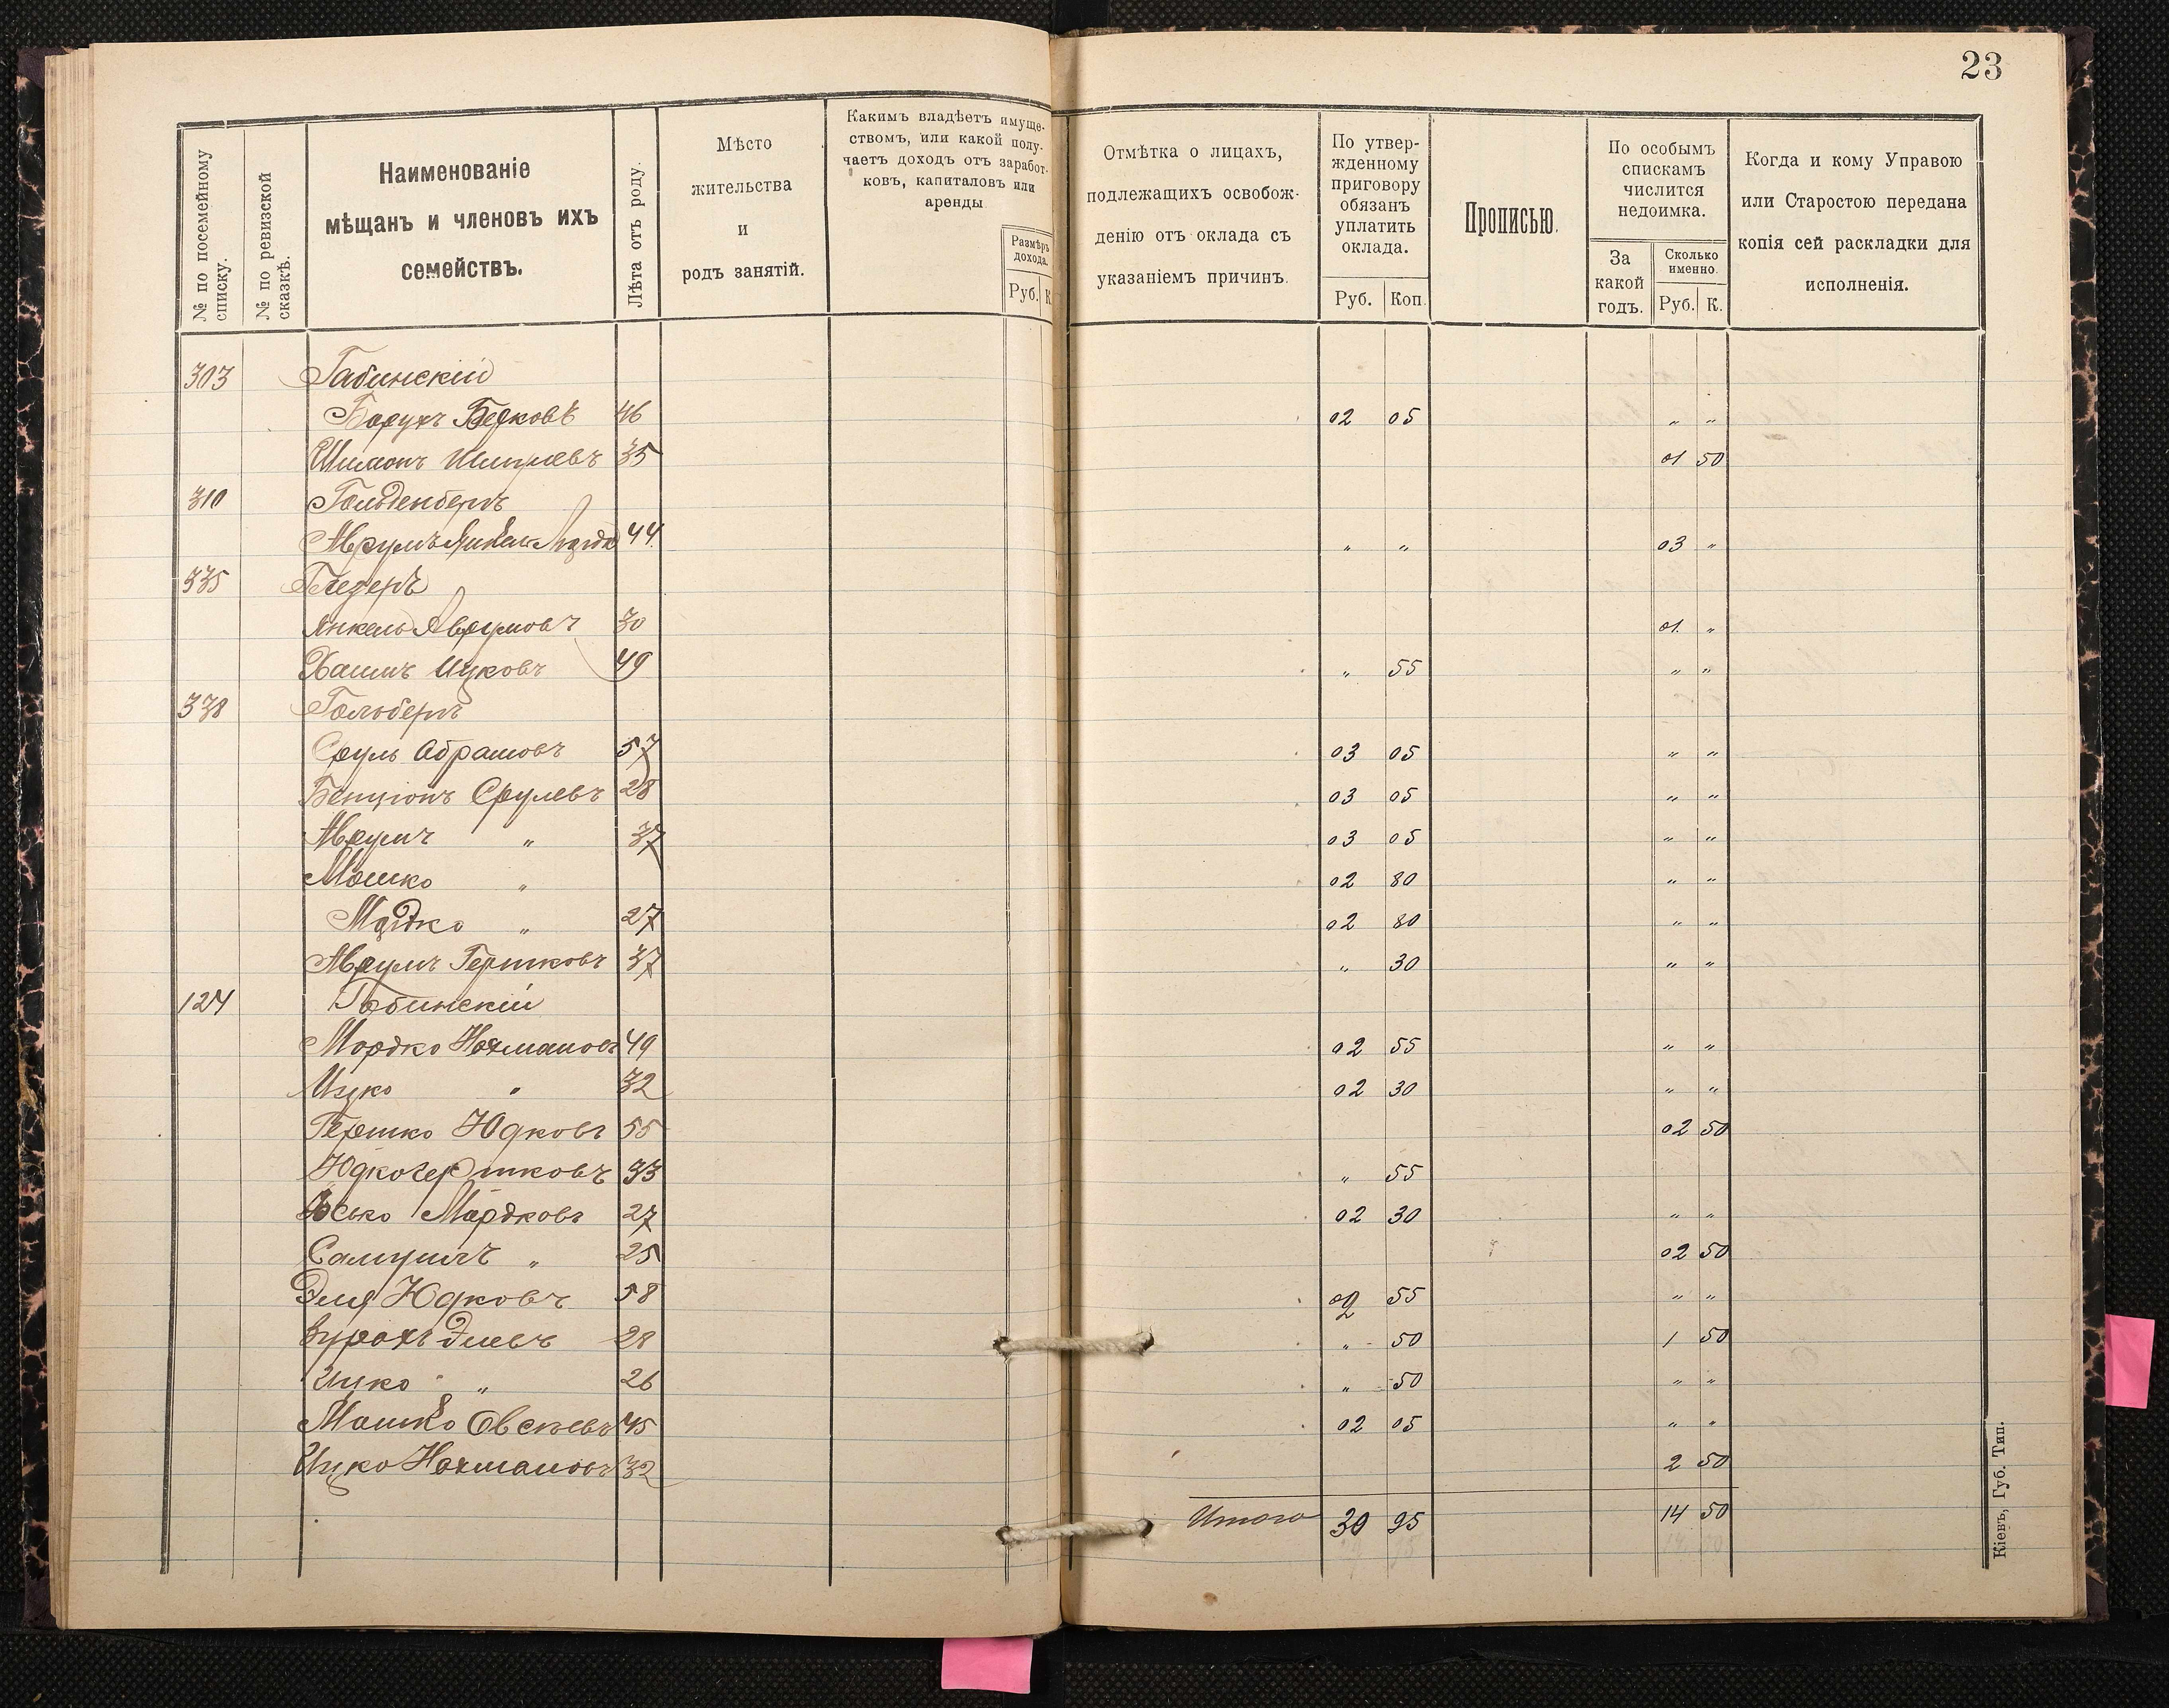 23
№ по посемейному списку.
№ по ревизской сказкѣ.
Наименованіе
мѣщанъ и членовъ ихъ
семействъ.
Лѣта отъ роду.
Мѣсто
жительства
и
родъ занятій.
Какимъ владѣетъ имуще-
ствомъ, или какой полу-
чаетъ доходъ отъ заработ-
ковъ, капиталовъ или
аренды
Размѣръ
дохода.
Руб. К
Отмѣтка о лицахъ,
подлежащихъ освобож-
денію отъ оклада съ
указаніемъ причинъ.
По утвер-
жденному
приговору
обязанъ
уплатить
оклада.
Руб. Коп.
Прописью.
По особымъ
спискамъ
числится
недоимка.
За
какой
годъ.
Сколько
именно.
Руб. К.
Когда и кому Управою
или Старостою передана
копія сей раскладки для
исполненія.
303 Габинскій
Борухъ Берковъ 46 02 05 " "
Шмаон 35 01 50
310 Гольденбергъ
Аврумъ 44 " " 03 "
335 Глезеръ
Янкель Аврумовъ 30 01 "
Хаимъ Ицковъ 49 " 55 " "
338 Гольбергъ
Сруль Абрамовъ 57 03 05 " "
Бенціонъ Срулевъ 28 03 05 " "
Аврумъ " 37 03 05 " "
Мошко " 02 80 " "
Мордко " 27 02 80 " "
Аврумъ Гершковъ 37 " 30 " "
124 Габинскій
Мордко Нахмановъ 49 02 55 " "
Ицко " 32 02 30 " "
Гершко Юдковъ 55 02 50
Юдко Гершковъ 33 " 55
Іосько Мордковъ 27 02 30 " "
Самуилъ " 25 02 50
Эля Юдковъ 58 02 55 " "
Элевъ 28 " 50 1 50
Ицко " 26 " 50 " "
Мошко Овсѣевъ 45 02 05 " "
Ицко Нахмановъ 32 2 50
Итого 30 95 14 50
Кіевъ, Губ. Тип.